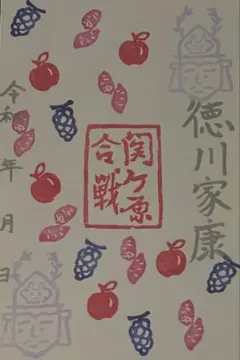 徳川家康
関ケ原
合戦
令和 年 月 日